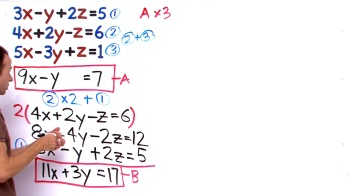 3x-y+2z=5 ① A×3
4x+2y-z=6 ② ②+③
5x-3y+z=1 ③
9x-y =7 -A
②×2+①
2(4x+2y-z=6)
8x 4y-2z=12
① x-y+2z=5
11x+3y=17 -B